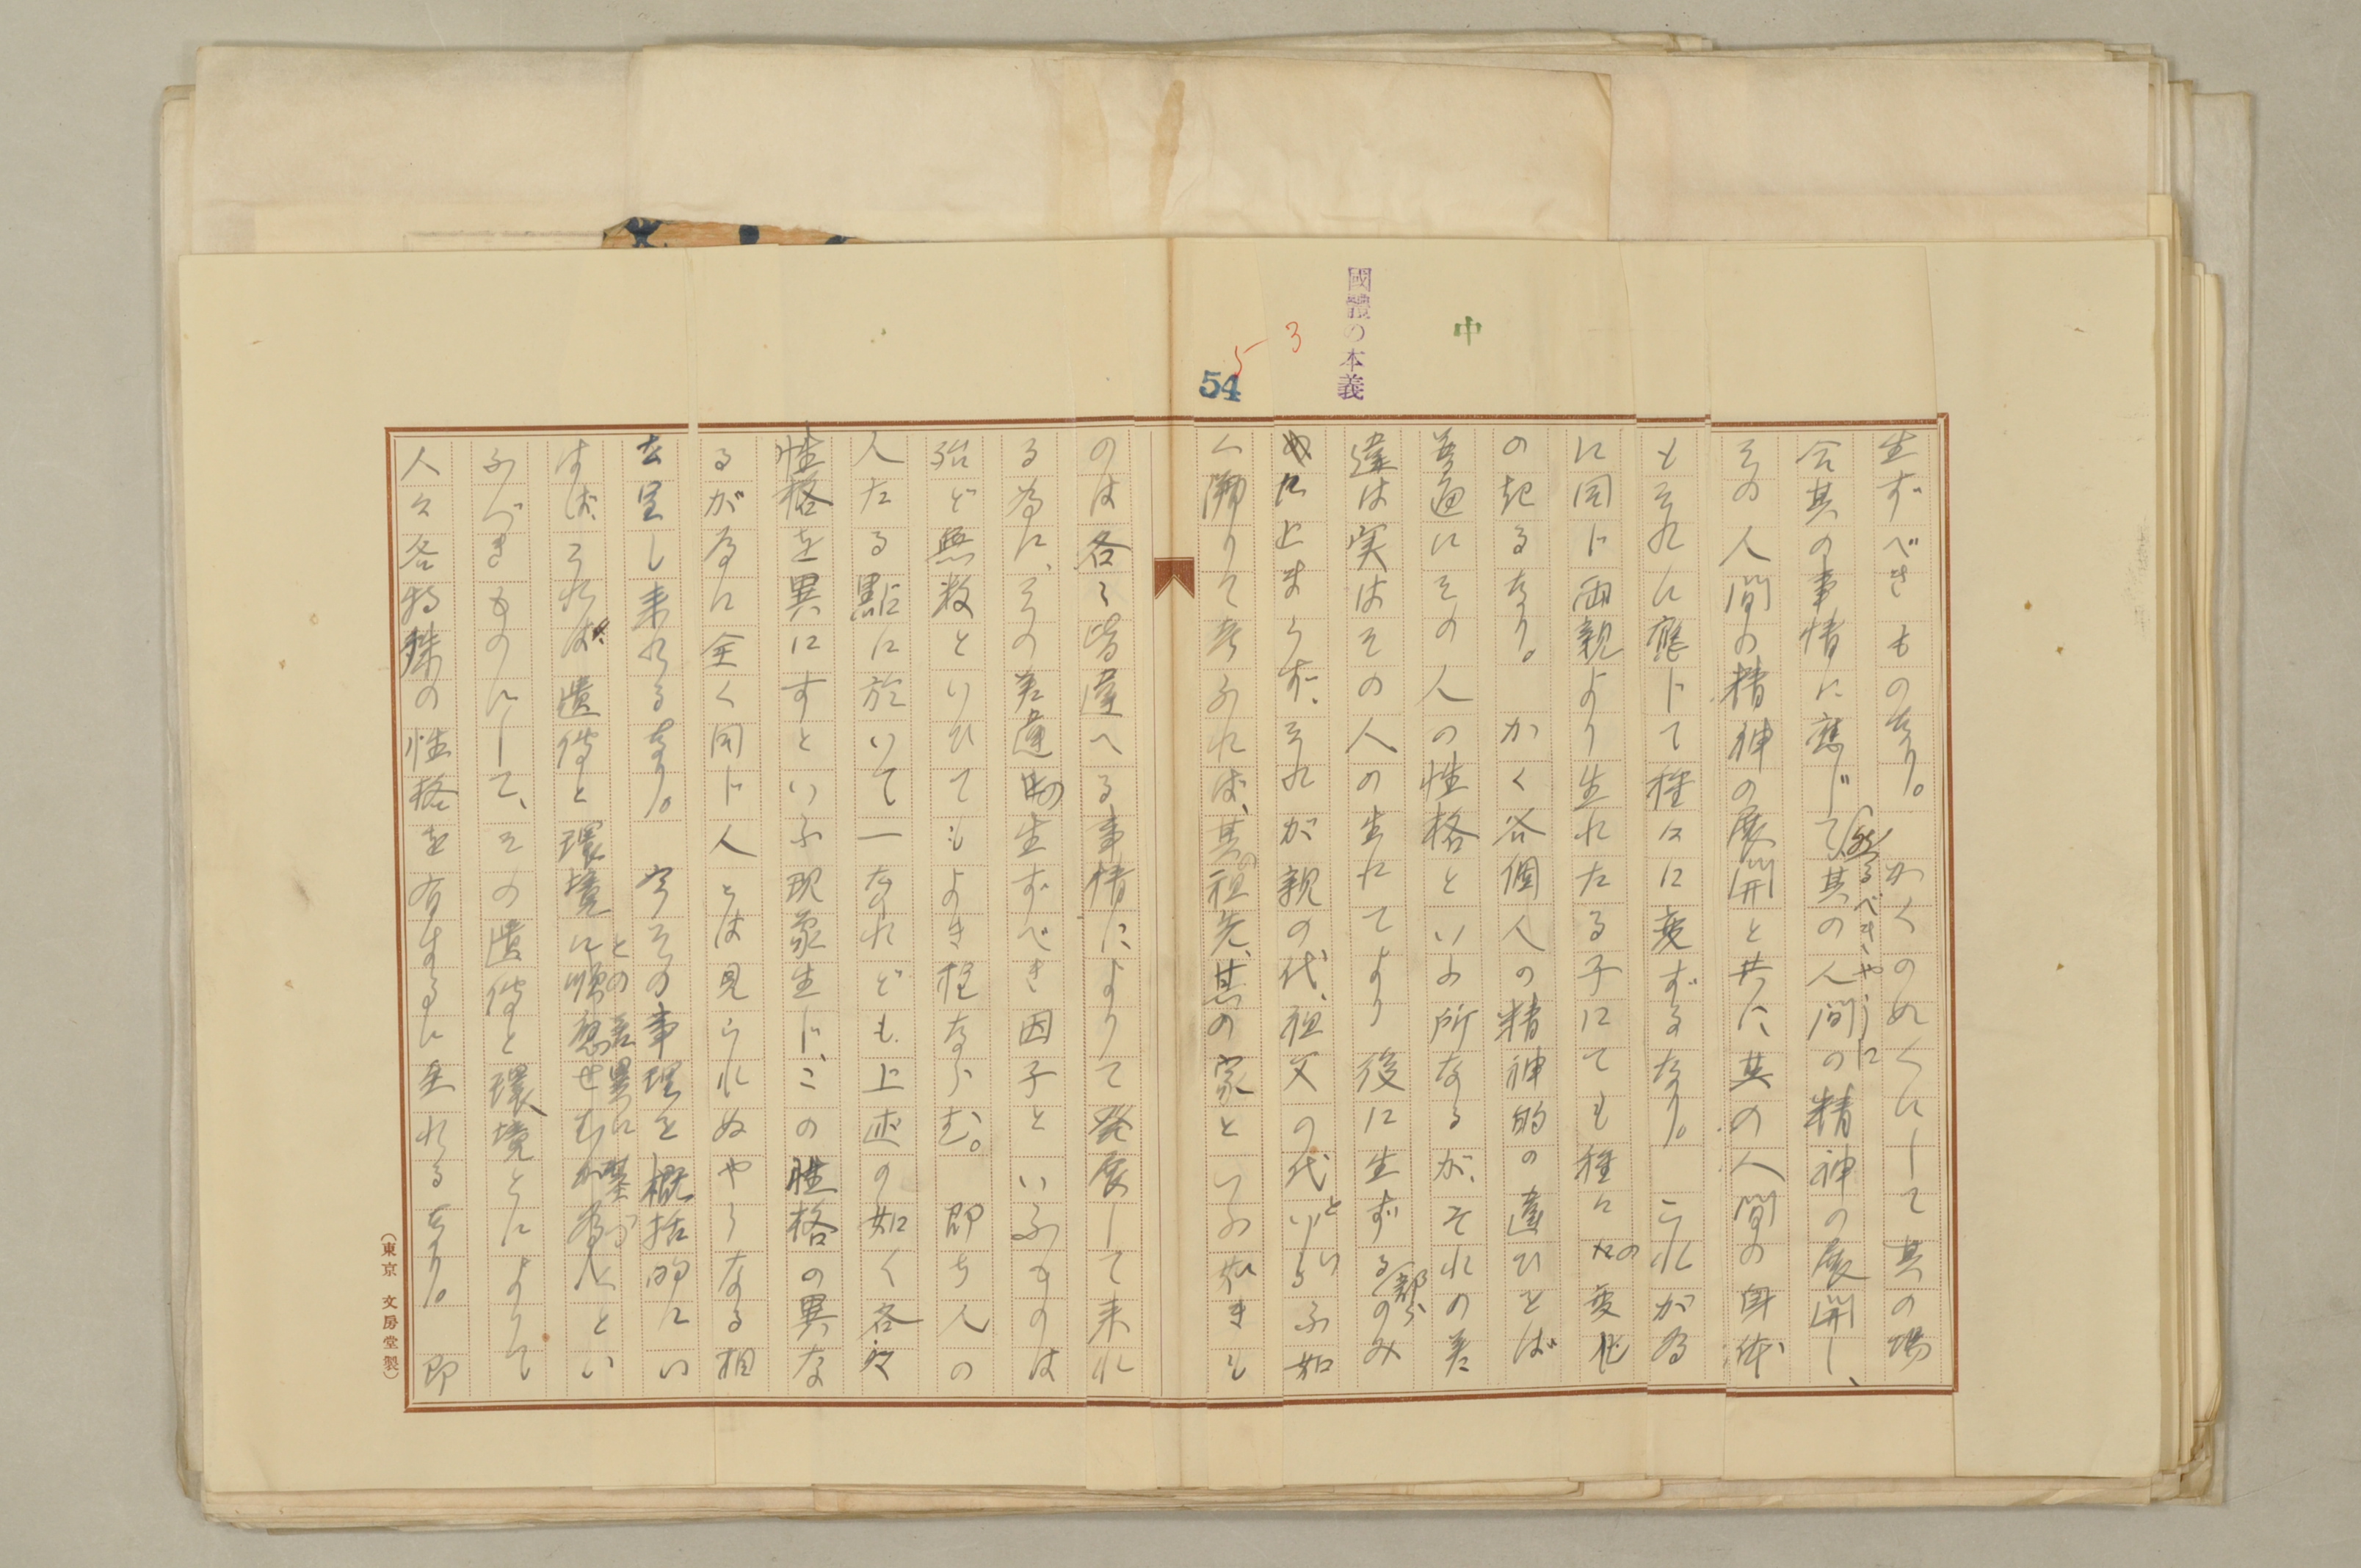 中
國體の本義
3
5
54
生ずべきものなり。かくのめくにして其の場
然るべきやうに
合其の事情に應じて、其の人間の精神の展開し、
その人間の精神の展開と共に、其の人間の身体
もそれに應じて種々に変ずるなり。これが為
に同じ両親より生れたる子にても種々の変化
の起るなり。かく各個人の精神的の違ひをば
普通にその人の性格といふ所なるが、それの差
違は実はその人の生れてより後に生ずる部分のみ
に止まらず、それが親の代、祖父の代といふ如
く溯りて考ふれば、其の祖先、其の家といふ如きも
のは各々皆違へる事情によりて発展して来れ
る為に、その差違の生ずべき因子といふものは
殆ど無数といひてもよき程ならむ。即ち人の
人たる點に於いて一なれども、上述の如く各々
性格を異にすといふ現象生じ、この性格の異な
るが為に全く同じ人とは見られぬやうなる相
を呈し来れるなり。今その事理を概括的にい
はば、それは遺傳と環境
との差異に基づくとい
ふべきものにして、その遺傳と環境とによりて
人々各特殊の性格を有するに至れるなり。即
（東京 文房堂製）